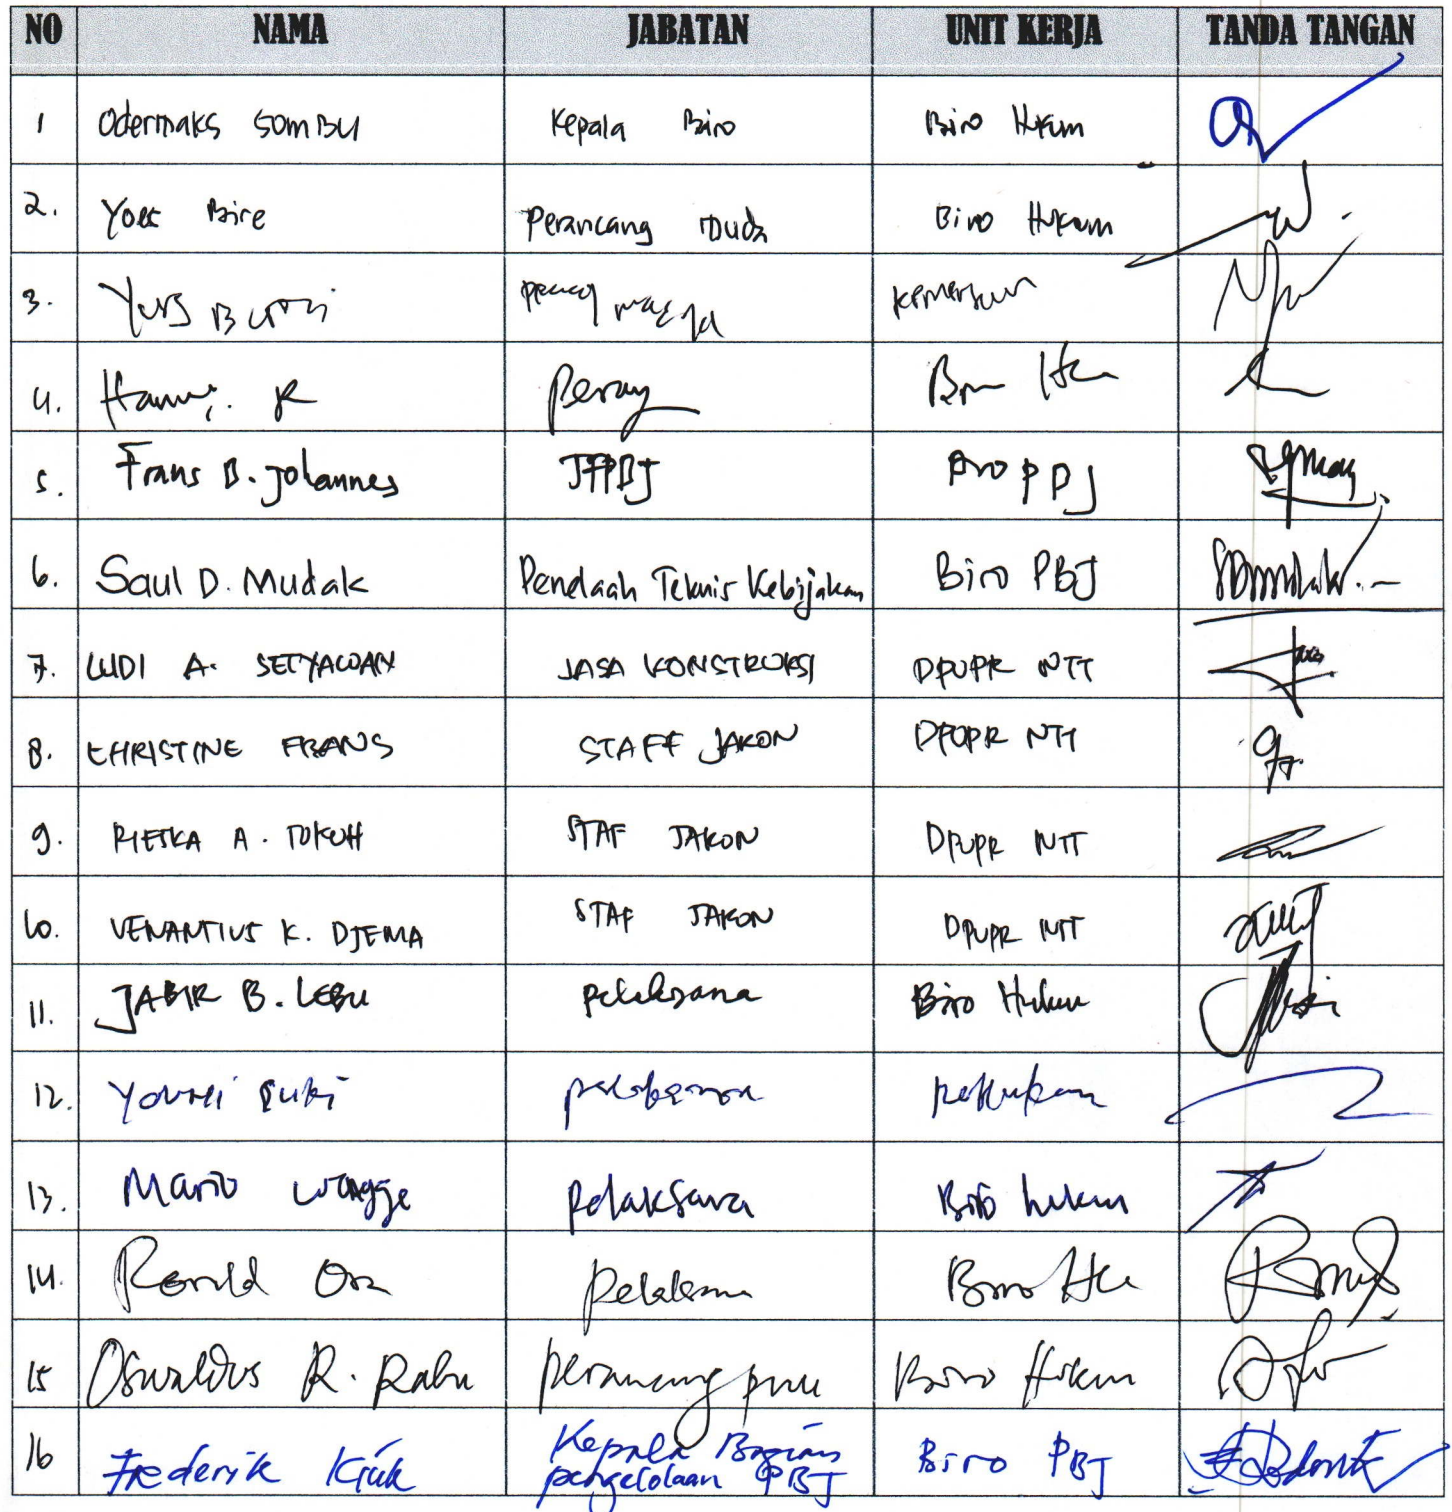 NO NAMA JABATAN UNIT KERJA TANDA TANGAN
1 Odermaks Sombu Kepala Biro Biro Hukum
2. Yoes Bire Perancang Muda Biro Hukum
3. Yus
4. R Biro
5. Frans B. Johannes JFPBJ Biro PBJ
6. Saul D. Mudak Penelaah Teknis Kebijakan Biro PBJ
7. LUDI A. SETYAWAN JASA KONSTRUKSI DPUPR NTT
8. CHRISTINE FRANS STAFF JAKON DPUPR NTT
9. A. STAF JAKON DPUPR NTT
10. VENANTIUS K. DJEMA STAF JAKON DPUPR NTT
11. JABIR B. LEBU pelaksana Biro Hukum
12. pelaksana
13. Mario Wangge pelaksana Biro hukum
14. Ronald pelaksana Biro
15 Oswaldus R. Rabu perancang puu Biro Hukum
16 Frederik Kiuk Kepala Bagian Biro PBJ
pengelolaan PBJ